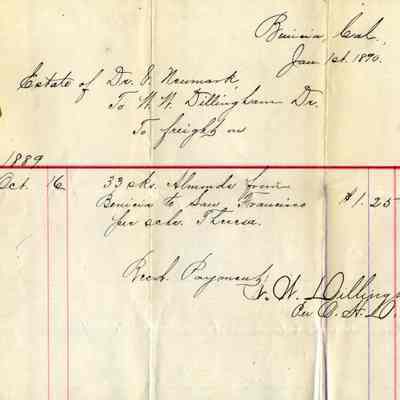 Benicia, Cal,
Jan 1st. 1890.
Estate of Dr. J. Neumark,
To W. W. Dillingham Dr.
To freight on
1889
Oct. 16 33 sks. Almonds from
Benicia to San Francisco $1.25
per schr. Theresa.
Recd. Payment,
W. W. Dilling
Per C. H. D.